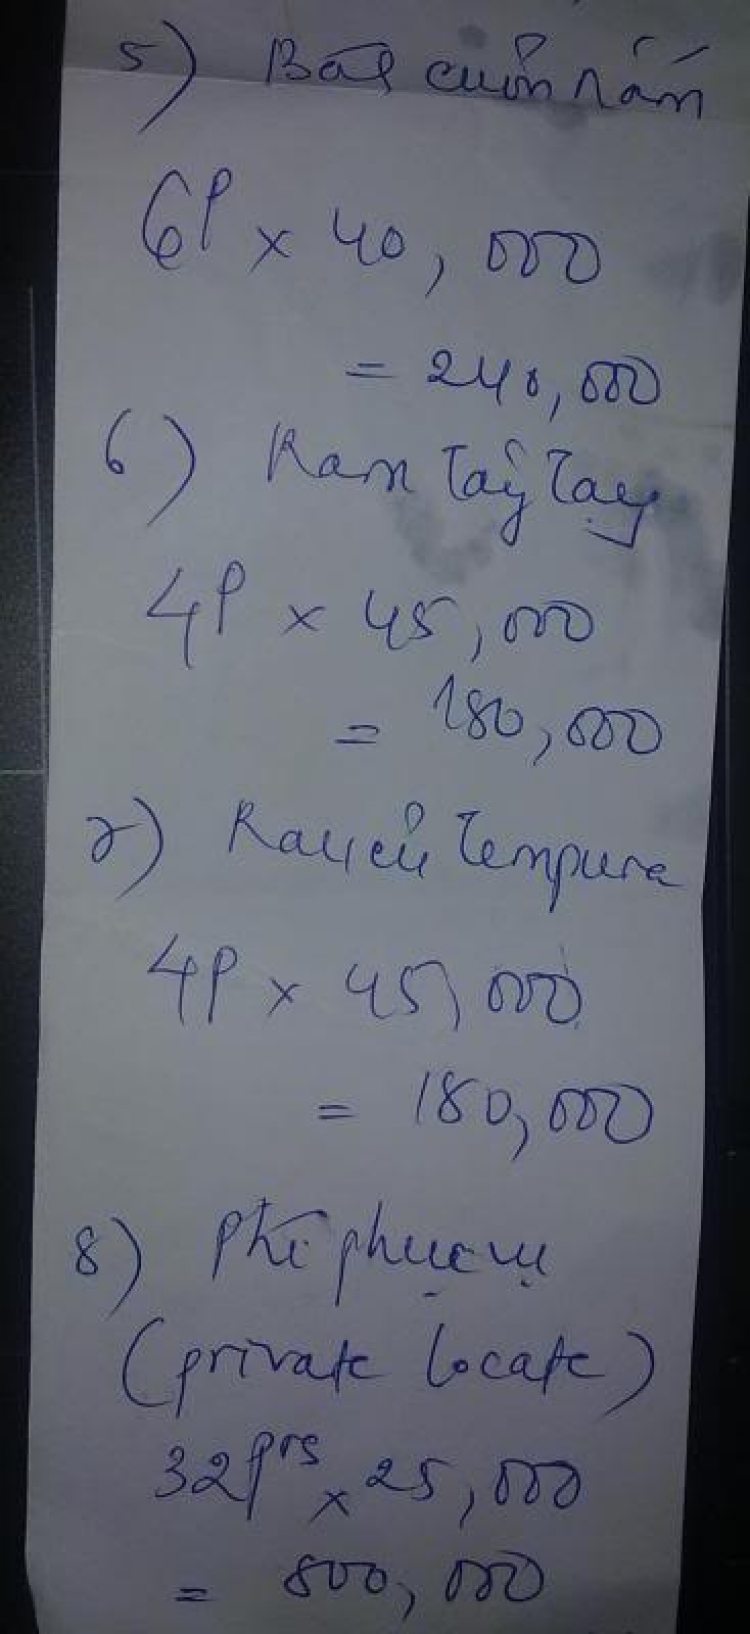 5) Bắp cuộn nấm
6P x 40,000
= 240,000
6) Nấm Tây Tạng
4P x 45,000
= 180,000
7) Rau củ Tempura
4P x 45,000
= 180,000
8) Phí phục vụ
(private locate)
32Prs x 25,000
= 800,000